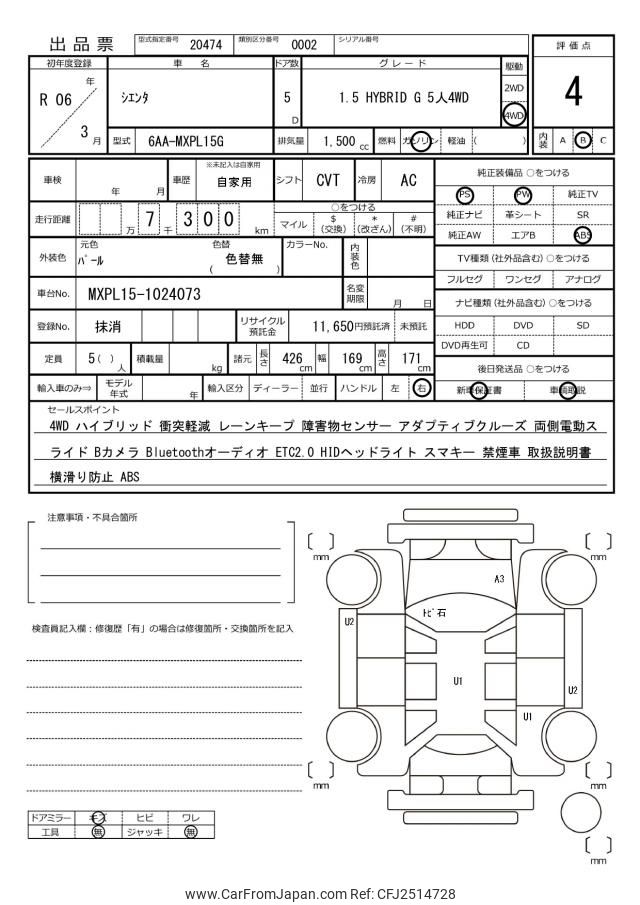 出品票 型式指定番号 20474 類別区分番号 0002 シリアル番号
評価点
4
初年度登録 車名 ドア数 グレード 駆動
R 06 年 3 月
シエンタ
5 D
1.5 HYBRID G 5人4WD
2WD
4WD
型式 6AA-MXPL15G 排気量 1,500 cc 燃料 ガソリン 軽油 ( )
内装 A B C
車検 年 月 車歴 ※未記入は自家用 自家用 シフト CVT 冷房 AC
走行距離 万 7 千 3 0 0 km
○をつける
マイル $ (交換) * (改ざん) # (不明)
外装色 元色 パール 色替 ( 色替無 ) カラーNo. 内装色
車台No. MXPL15-1024073 名変期限 月 日
登録No. 抹消 リサイクル預託金 11,650円預託済 未預託
定員 5 ( ) 人 積載量 kg 諸元 長さ 426 cm 幅 169 cm 高さ 171 cm
輸入車のみ⇒ モデル年式 年 輸入区分 ディーラー 並行 ハンドル 左 右
純正装備品 ○をつける
PS PW 純正TV
純正ナビ 革シート SR
純正AW エアB ABS
TV種類 (社外品含む) ○をつける
フルセグ ワンセグ アナログ
ナビ種類 (社外品含む) ○をつける
HDD DVD SD
DVD再生可 CD
後日発送品 ○をつける
新車保証書 車輌取説
セールスポイント
4WD ハイブリッド 衝突軽減 レーンキープ 障害物センサー アダプティブクルーズ 両側電動ス
ライド Bカメラ Bluetoothオーディオ ETC2.0 HIDヘッドライト スマキー 禁煙車 取扱説明書
横滑り防止 ABS
注意事項・不具合箇所
検査員記入欄：修復歴「有」の場合は修復箇所・交換箇所を記入
mm
mm
A3
トビ石
U2
U1
U2
U1
mm
mm
mm
ドアミラー キズ ヒビ ワレ
工具 無 ジャッキ 無
www.CarFromJapan.com Ref: CFJ2514728